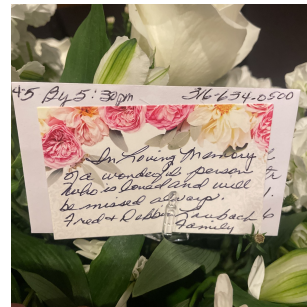 4-5 By 5:30pm 316-634-0500
In Loving Memory
of a wonderful person
who is loved and will
be missed always.
Fred & Debbie Laubach
Family